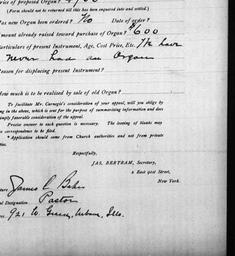 price of proposed Organ?
(Form should not to returned till this has been requested into and settled.)
as new Organ been ordered? No Date of order?
amount already raised toward purchase of Organ? $600
Particulars of present Instrument, Age, Cost Price, Etc. We have
never had an Organ
Reason for displacing present Instrument?
How much is to be realized by sale of old Organ?
To facilitate Mr. Carnegie's consideration of your appeal, will you oblige by
filling in the above, which is sent for the purpose of summarizing information and does
not imply favorable consideration of the appeal.
Precise answer to each question is necessary. The issuing of blanks may
correspondence to be filed.
* Application should come from Church authorities and not from private
Respectfully,
JAS. BERTRAM, Secretary,
2 East 91st Street,
New York.
James L
Designation. Pastor
921 W. Green, Urbana, Ills.